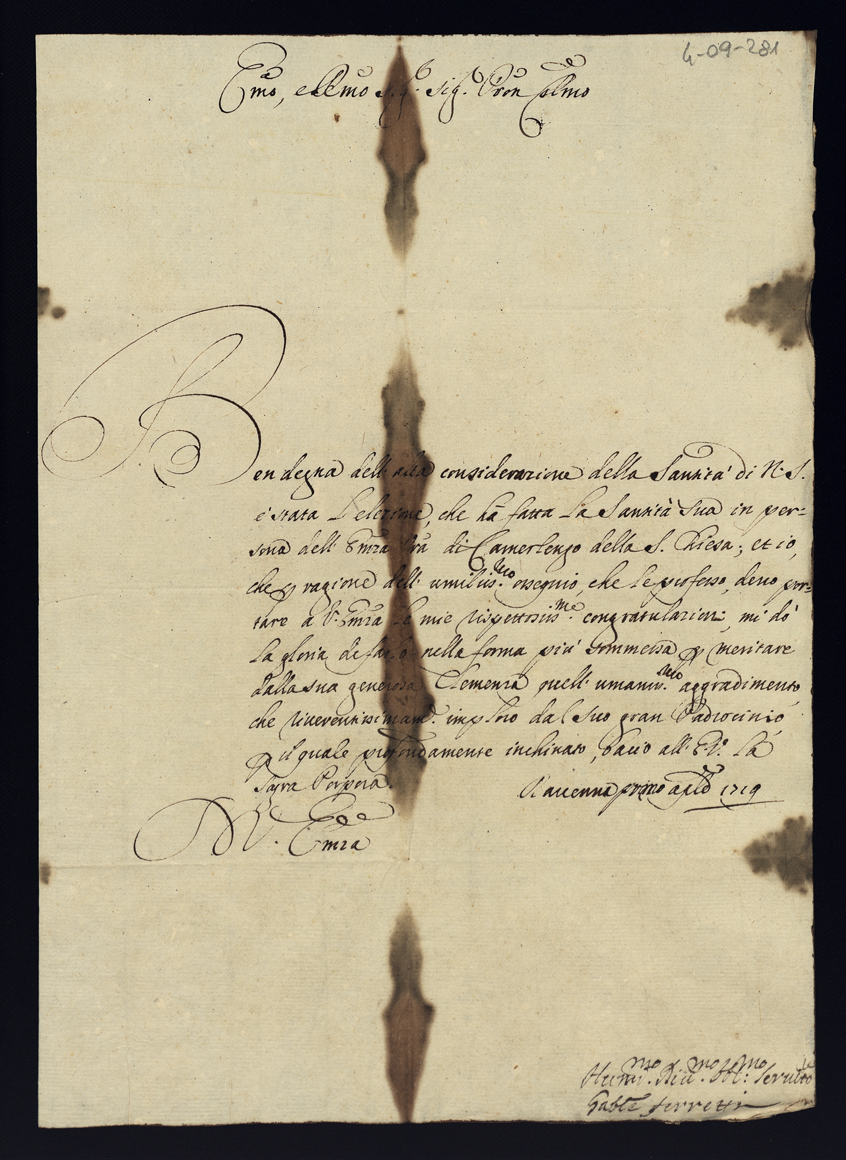 4-09-281
Emo, e Rmo Sig.r Sig.r Pron Colmo
Ben degna dell' alta considerazione della Santità di N. S.
è stata L'elezione, che hà fatta La Santità Sua in per=
sona dell' Emza Vrã di Camerlengo della S. Chiesa; et io,
che p ragione dell' umiliss.mo ossequio, che le professo, devo por=
tare a V. Emza le mie rispettosiss.me congratulazioni, mi dò
La gloria di farlo nella forma più sommessa p meritare
dalla sua generosa Clemenza quell' umaniss.mo aggradimento
che riverentissimam.e imploro dal Suo gran Padrocinio
p il quale profondamente inchinato, bacio all' E.V. La
Sagra Porpora.
Ravenna primo aple 1719
D V. Emza
Humi.mo Div.mo Ob:mo Serv.
Gable Ferretti